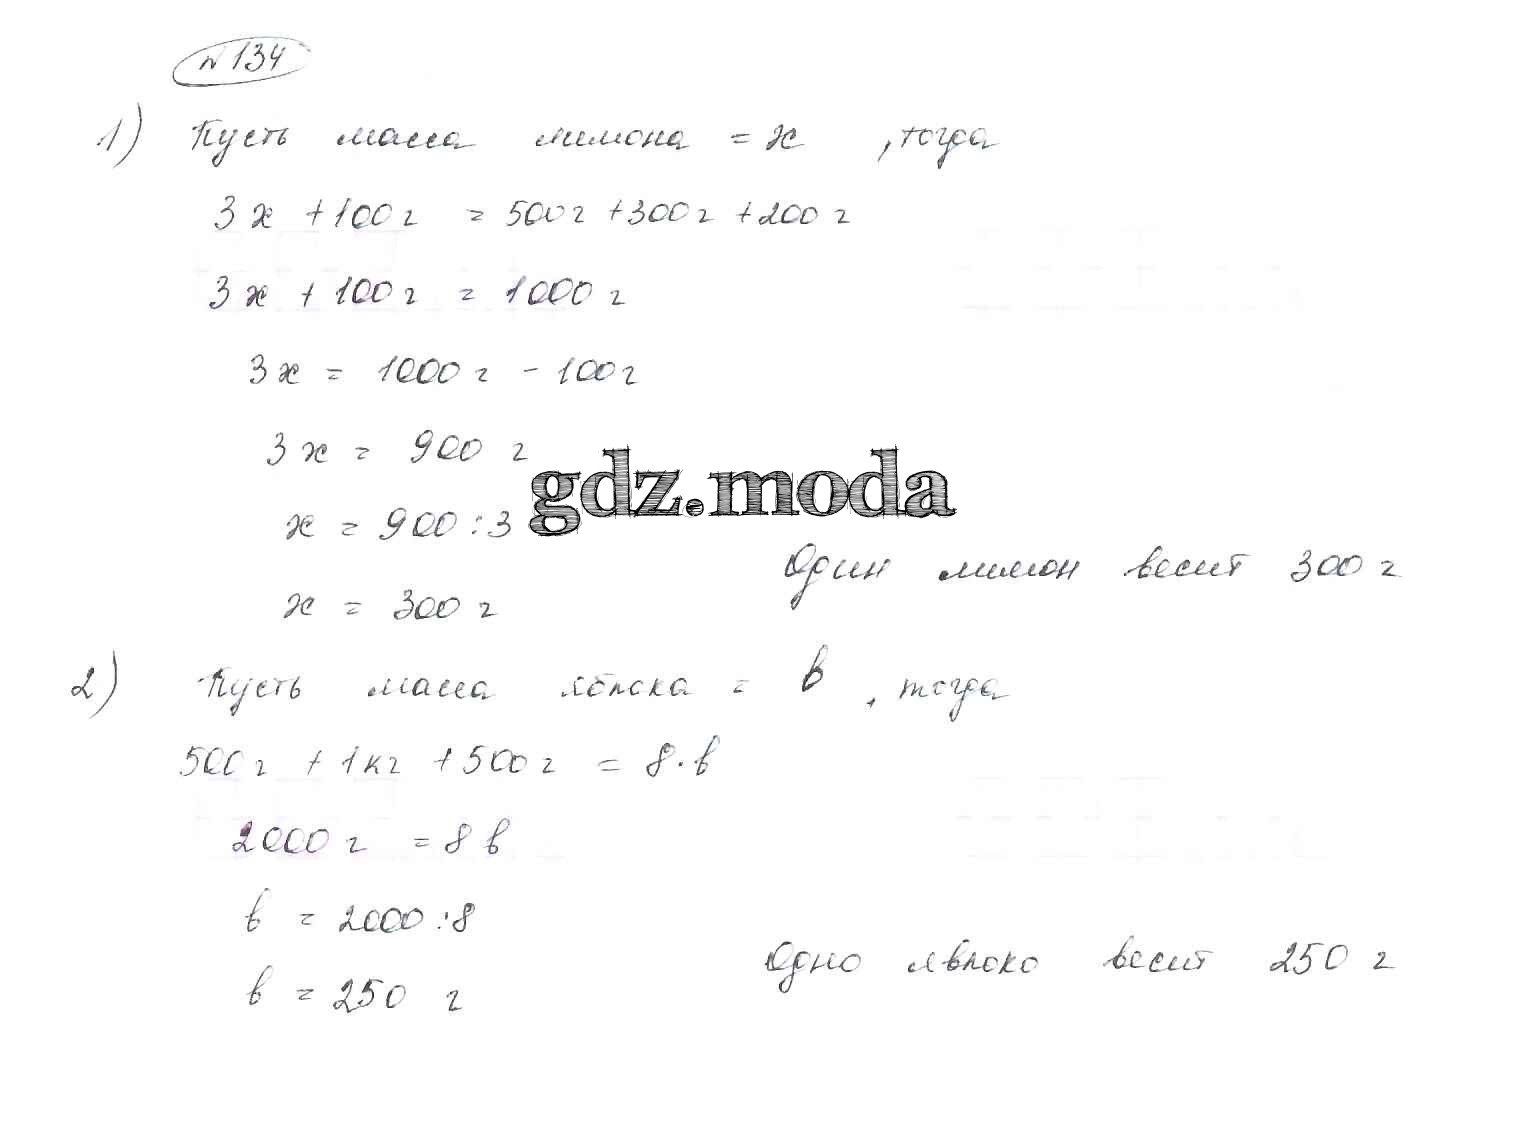 №134
1) Пусть масса лимона = x , тогда
3x + 100г = 500г + 300г + 200г
3x + 100г = 1000г
3x = 1000г - 100г
3x = 900 г
gdz.moda
x = 900 : 3
Один лимон весит 300 г
x = 300 г
2) Пусть масса яблока = b , тогда
500г + 1кг + 500г = 8·b
2000г = 8b
b = 2000 : 8
Одно яблоко весит 250 г
b = 250 г